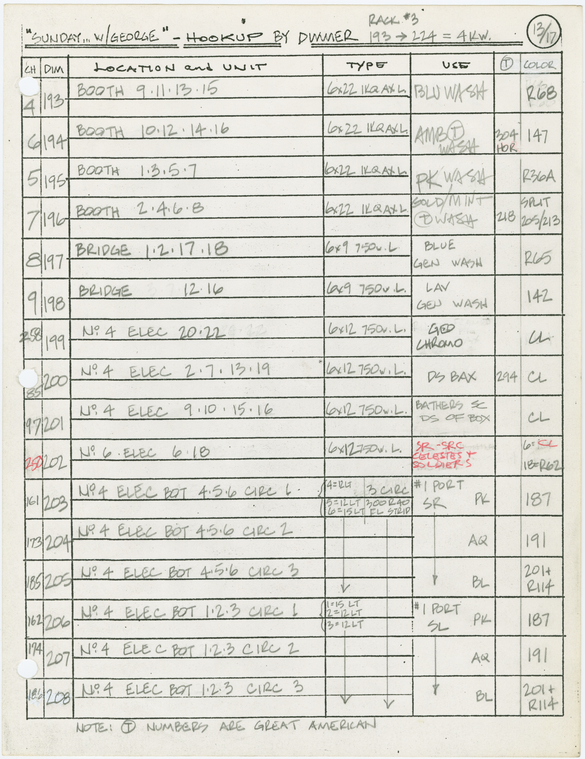 RACK #3
"SUNDAY... W/GEORGE" - HOOKUP BY DIMMER 193 → 224 = 4KW. 13/17
CH DIM LOCATION and UNIT TYPE USE Ⓣ COLOR
4 193 BOOTH 9·11·13·15 6x22 1KQAXL BLU WASH R68
6 194 BOOTH 10·12·14·16 6x22 1KQAXL AMB Ⓣ WASH 304 HOR 147
5 195 BOOTH 1·3·5·7 6x22 1KQAXL PK WASH R36A
7 196 BOOTH 2·4·6·8 6x22 1KQAXL GOLD/MINT Ⓣ WASH 218 SPLIT 205/213
8 197 BRIDGE 1·2·17·18 6x9 750w.L BLUE GEN WASH R65
9 198 BRIDGE 12·16 6x9 750w.L. LAV GEN WASH 142
258 199 Nº 4 ELEC 20·22 6x12 750w.L. GEO CHROMO CL
85 200 Nº 4 ELEC 2·7·13·19 6x12 750w.L. DS BAX 294 CL
97 201 Nº 4 ELEC 9·10·15·16 6x12 750w.L. BATHERS SC DS OF BOX CL
250 202 Nº 6 ELEC 6·18 6x12 750w.L. SR-SRC CELESTES & SOLDIERS 6=CL 18=R62
161 203 Nº 4 ELEC BOT 4·5·6 CIRC 1 4=8LT 5=12LT 6=15LT 3 CIRC 300R40 FL STRIP #1 PORT SR PK 187
173 204 Nº 4 ELEC BOT 4·5·6 CIRC 2 AQ 191
185 205 Nº 4 ELEC BOT 4·5·6 CIRC 3 BL 201+ R114
162 206 Nº 4 ELEC BOT 1·2·3 CIRC 1 1=15 LT 2=12LT 3=12LT #1 PORT SL PK 187
174 207 Nº 4 ELEC BOT 1·2·3 CIRC 2 AQ 191
208 Nº 4 ELEC BOT 1·2·3 CIRC 3 BL 201+ R114
NOTE: Ⓣ NUMBERS ARE GREAT AMERICAN